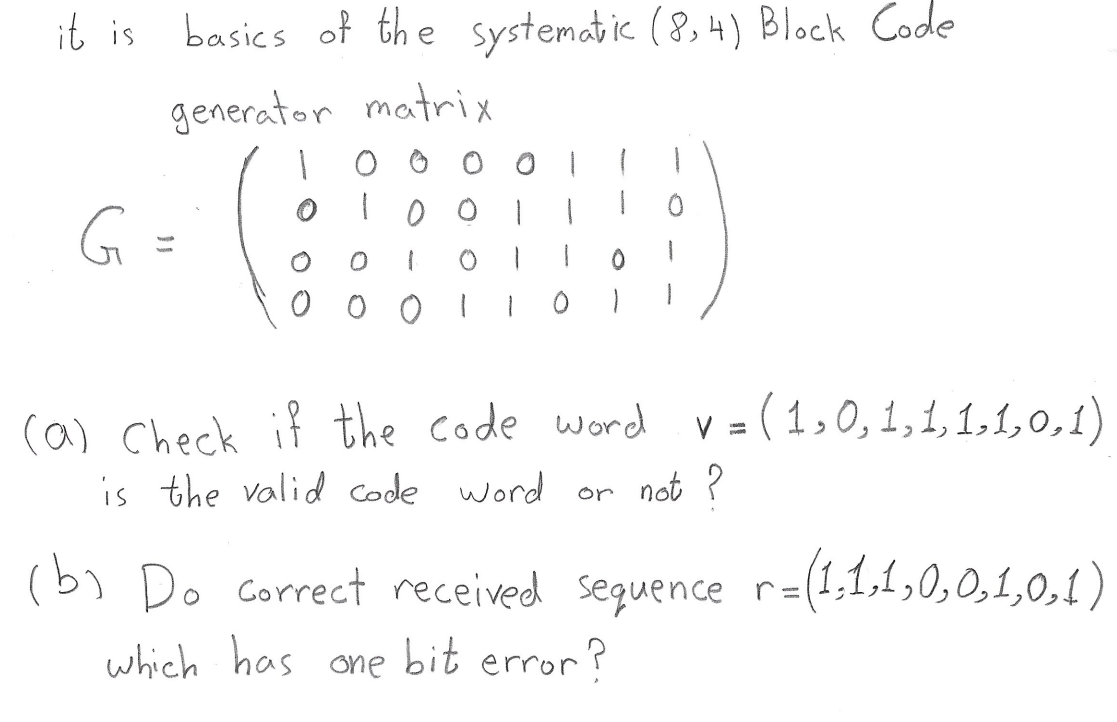 it is basics of the systematic (8,4) Block Code
generator matrix
G = ( 1 0 0 0 0 1 1 1
0 1 0 0 1 1 1 0
0 0 1 0 1 1 0 1
0 0 0 1 1 0 1 1 )
(a) Check if the code word v = (1,0,1,1,1,1,0,1)
is the valid code word or not ?
(b) Do correct received sequence r=(1,1,1,0,0,1,0,1)
which has one bit error?